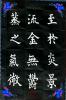 至於炎景
流金無鬱
蒸之氣微